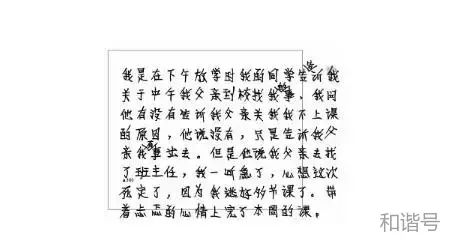 我是在下午放学时我的同学告诉我
关于中午我父亲到校找我事、我问
他有没有告诉我父亲关我我不上课
的原因，他说没有，只是告诉我父
亲我出去。但是他说我父亲去找
了班主任，我一听急了，心想这次
死定了，因为我逃好多节课了。带
着忐忑的心情上完了本周的课。
和谐号